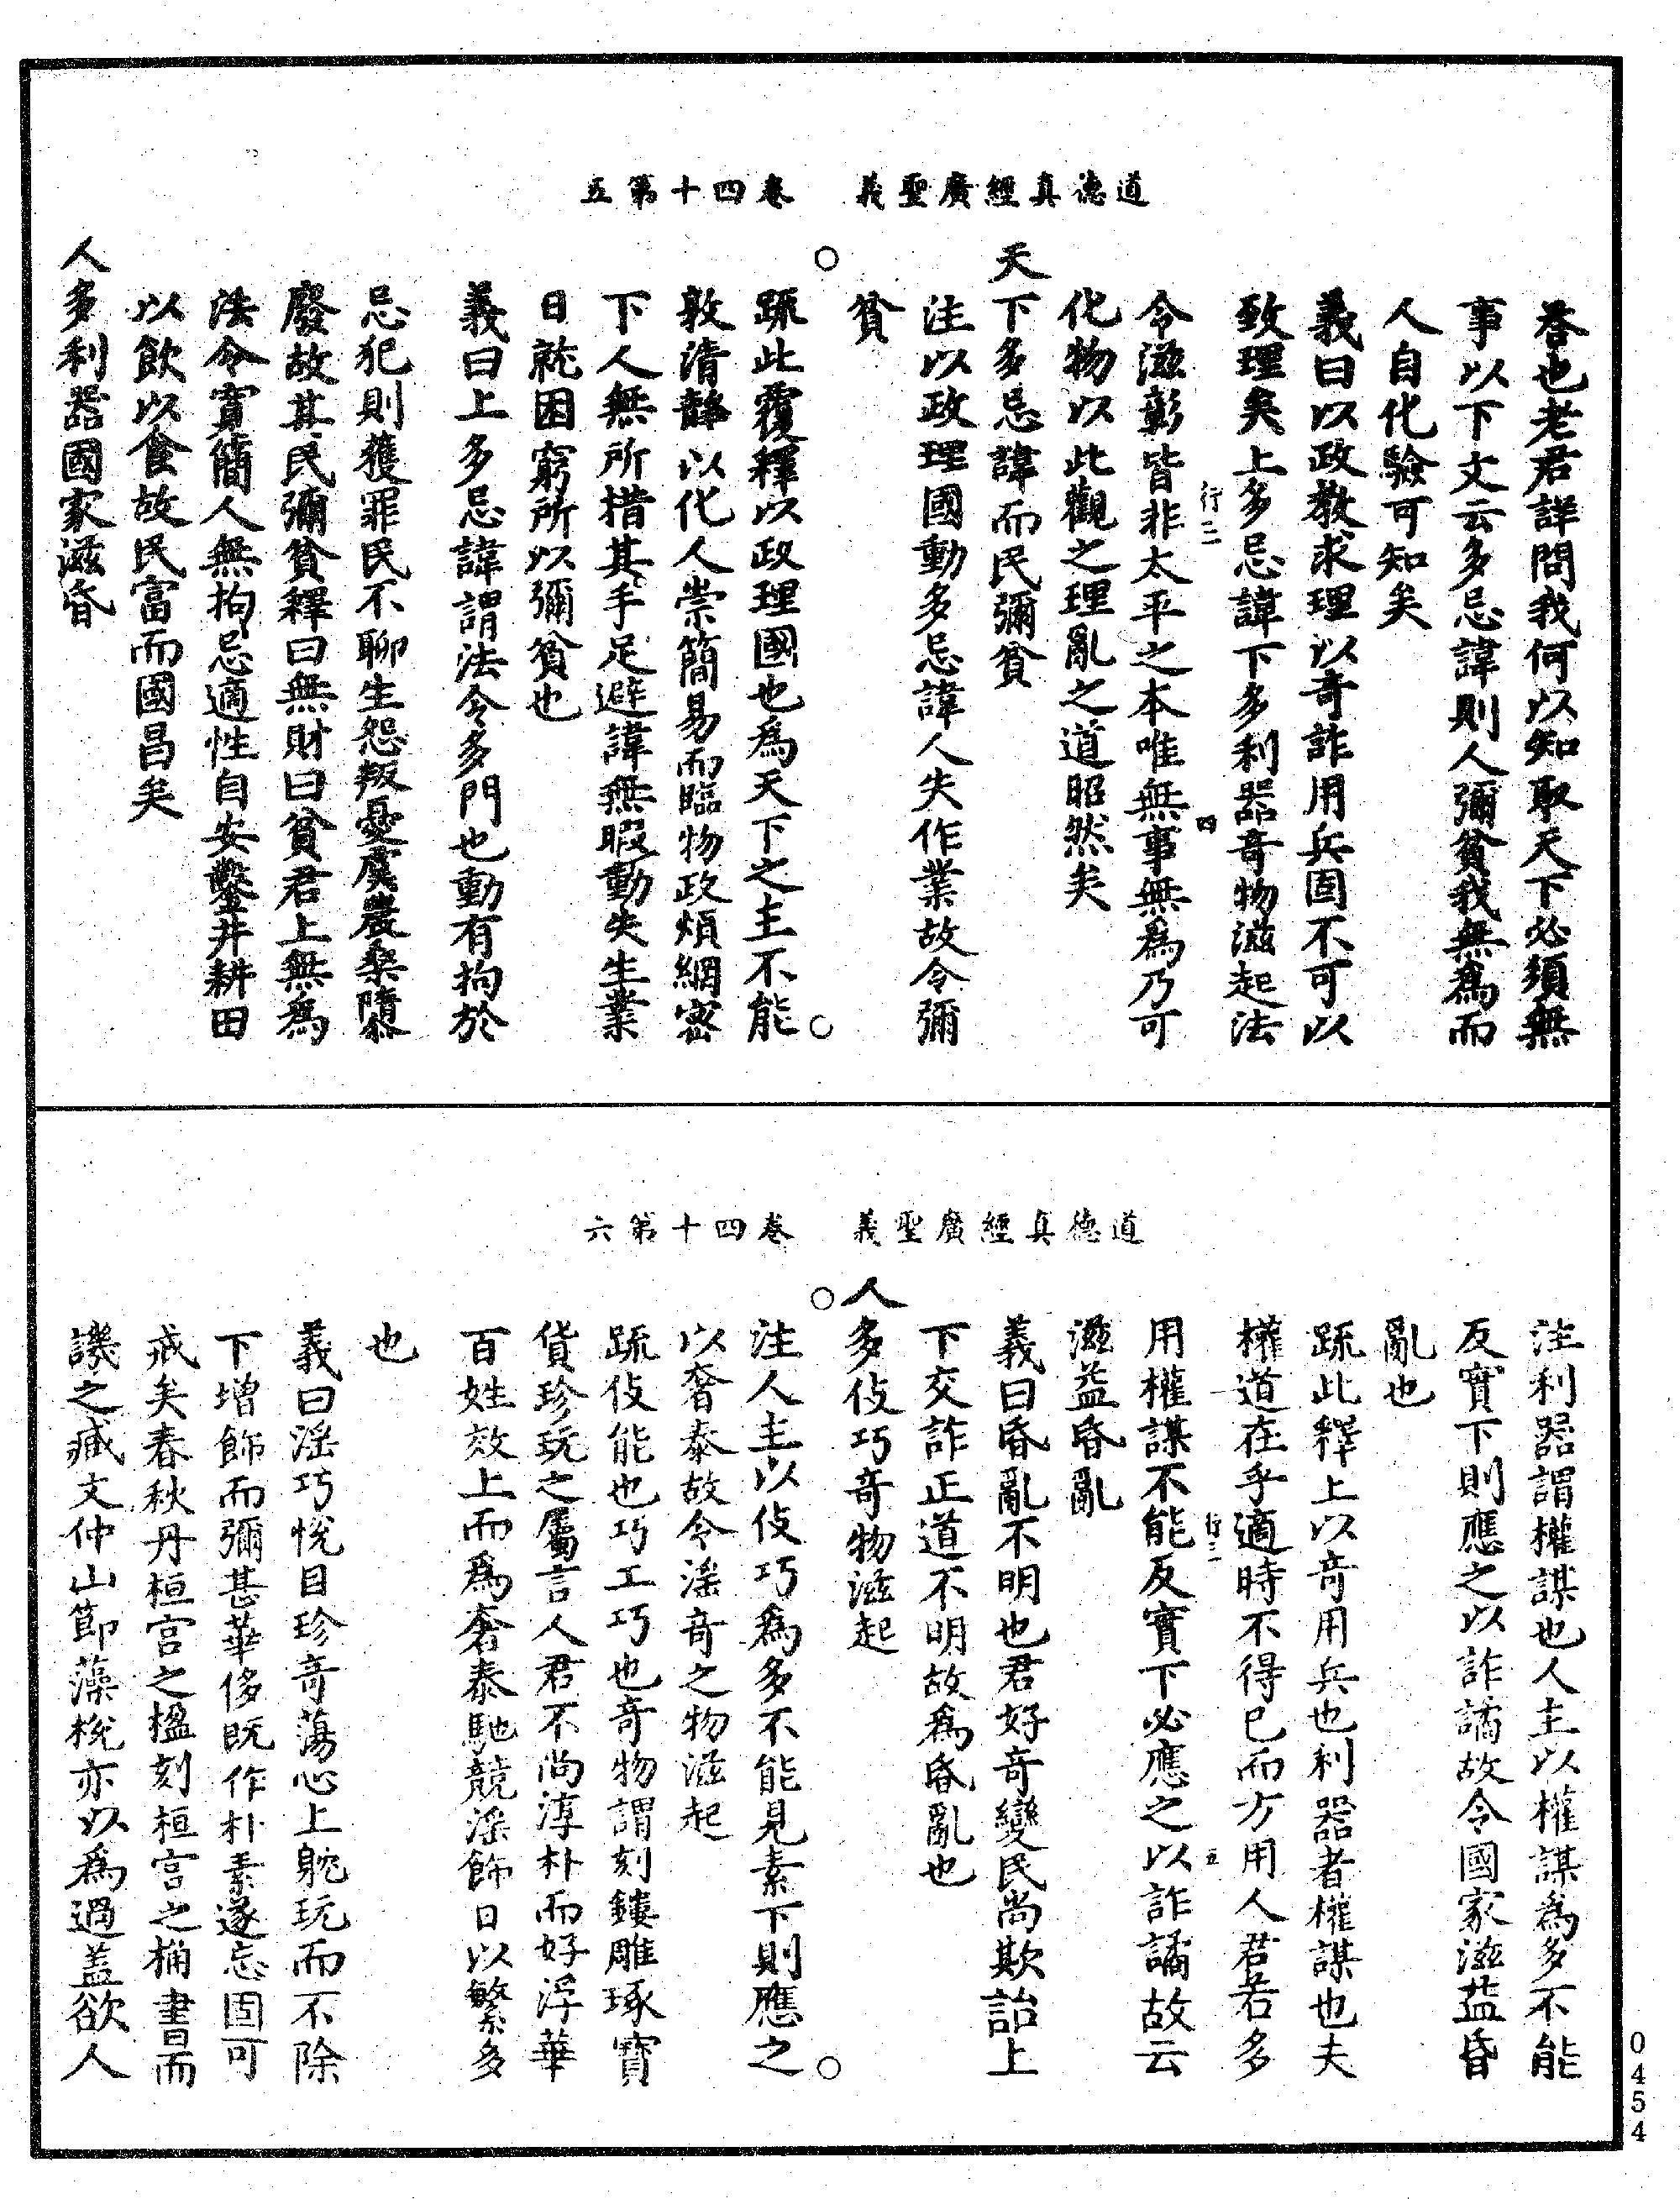 道德真經廣聖義　卷四十第五
荅也老君詳問我何以知取天下必須無
事以下文云多忌諱則人彌貧我無為而
人自化驗可知矣
義曰以政教求理以奇詐用兵固不可以
致理矣上多忌諱下多利器奇物滋起法
行二
四
令滋彰皆非太平之本唯無事無為乃可
化物以此觀之理亂之道昭然矣
天下多忌諱而民彌貧
注以政理國動多忌諱人失作業故令彌
貧
疏此覆釋以政理國也為天下之主不能
敦清靜以化人崇簡易而臨物政煩網密
下人無所措其手足避諱無暇動失生業
日就困窮所以彌貧也
義曰上多忌諱謂法令多門也動有拘於
忌犯則獲罪民不聊生怨叛憂虞農桑隳
廢故其民彌貧釋曰無財曰貧君上無為
法令寬簡人無拘忌適性自安鑿井耕田
以飲以食故民富而國昌矣
人多利器國家滋昏
道德真經廣聖義　卷四十第六
注利器謂權謀也人主以權謀為多不能
反實下則應之以詐譎故令國家滋益昏
亂也
疏此釋上以奇用兵也利器者權謀也夫
權道在乎適時不得已而方用人君若多
行二
五
用權謀不能反實下必應之以詐譎故云
滋益昏亂
義曰昏亂不明也君好奇變民尚欺詒上
下交詐正道不明故為昏亂也
人多伎巧奇物滋起
注人主以伎巧為多不能見素下則應之
以奢泰故令淫奇之物滋起
疏伎能也巧工巧也奇物謂刻鏤雕琢寶
貨珍玩之屬言人君不尚淳朴而好浮華
百姓效上而為奢泰馳競淫飾日以繁多
也
義曰淫巧悅目珍奇蕩心上躭玩而不除
下增飾而彌甚華侈既作朴素遂忘固可
戒矣春秋丹桓宮之楹刻桓宮之桷書而
譏之臧文仲山節藻梲亦以為過蓋欲人
0454